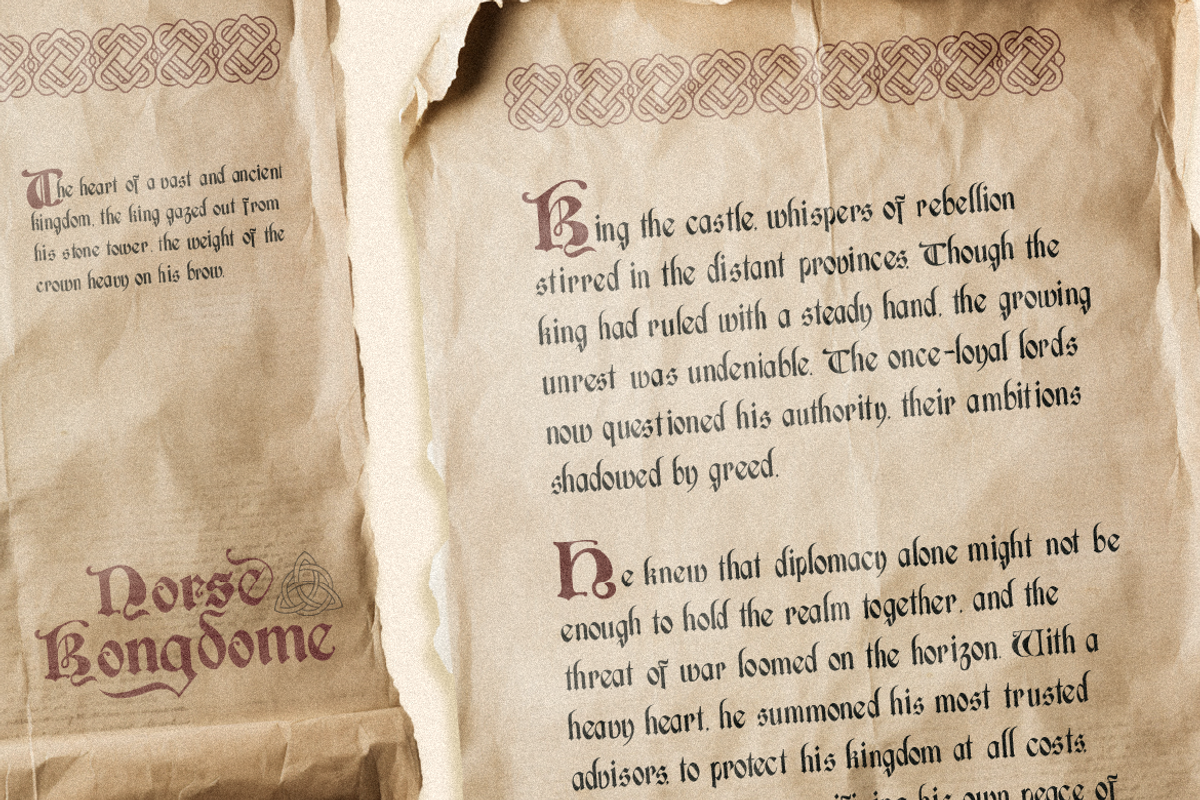 The heart of a vast and ancient
kingdom, the king gazed out from
his stone tower, the weight of the
crown heavy on his brow.
Norse
Kongdome
King the castle, whispers of rebellion
stirred in the distant provinces. Though the
king had ruled with a steady hand, the growing
unrest was undeniable. The once-loyal lords
now questioned his authority, their ambitions
shadowed by greed.
He knew that diplomacy alone might not be
enough to hold the realm together, and the
threat of war loomed on the horizon. With a
heavy heart, he summoned his most trusted
advisors, to protect his kingdom at all costs,
his own peace of